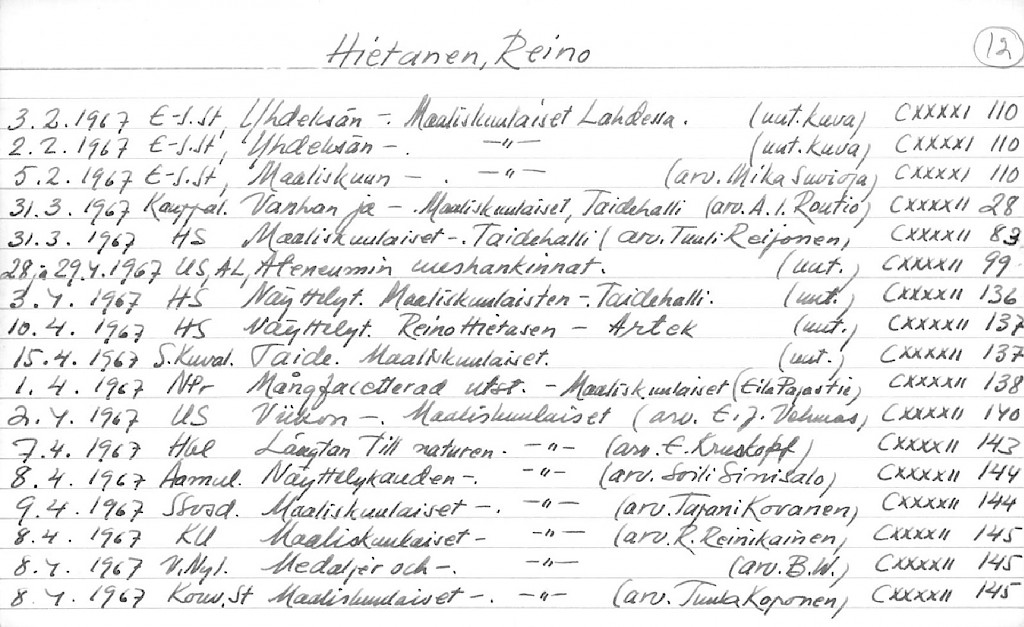 Hietanen, Reino 12
3.2.1967 E-S.St, Yhdeksän -. Maaliskuulaiset Lahdessa. (uut. kuva) CXXXXI 110
2.2.1967 E-S.St, Yhdeksän -. -"- (uut. kuva) CXXXXI 110
5.2.1967 E-S.St, Maaliskuun - . -"- (arv. Mika Suvioja) CXXXXI 110
31.3.1967 Kauppal. Vanhan ja -. Maaliskuulaiset, Taidehalli (arv. A.I. Routio) CXXXXII 28
31.3.1967 HS Maaliskuulaiset -. Taidehalli (arv. Tuuli Reijonen) CXXXXII 83
28 ja 29.4.1967 US, AL, Ateneumin uushankinnat. (uut.) CXXXXII 99
3.4.1967 HS Näyttelyt. Maaliskuulaisten -. Taidehalli. (uut.) CXXXXII 136
10.4.1967 HS Näyttelyt. Reino Hietasen - Artek (uut.) CXXXXII 137
15.4.1967 S.Kuval. Taide. Maaliskuulaiset. (uut.) CXXXXII 137
1.4.1967 NPr Mångfacetterad utst. - Maaliskuulaiset (Eila Pajastie) CXXXXII 138
2.4.1967 US Viikon -. Maaliskuulaiset (arv. E.J. Vehmas) CXXXXII 140
7.4.1967 Hbl Längtan till naturen. -"- (arv. E. Kruskopf) CXXXXII 143
8.4.1967 Aamul. Näyttelykauden -. -"- (arv. Soili Sinisalo) CXXXXII 144
9.4.1967 SSosd. Maaliskuulaiset -. -"- (arv. Tapani Kovanen) CXXXXII 144
8.4.1967 KU Maaliskuulaiset - -"- (arv. R. Reinikainen) CXXXXII 145
8.4.1967 V.Nyl. Medaljer och -. -"- (arv. B.W.) CXXXXII 145
8.4.1967 Kouv.St Maaliskuulaiset -. -"- (arv. Tuula Koponen) CXXXXII 145